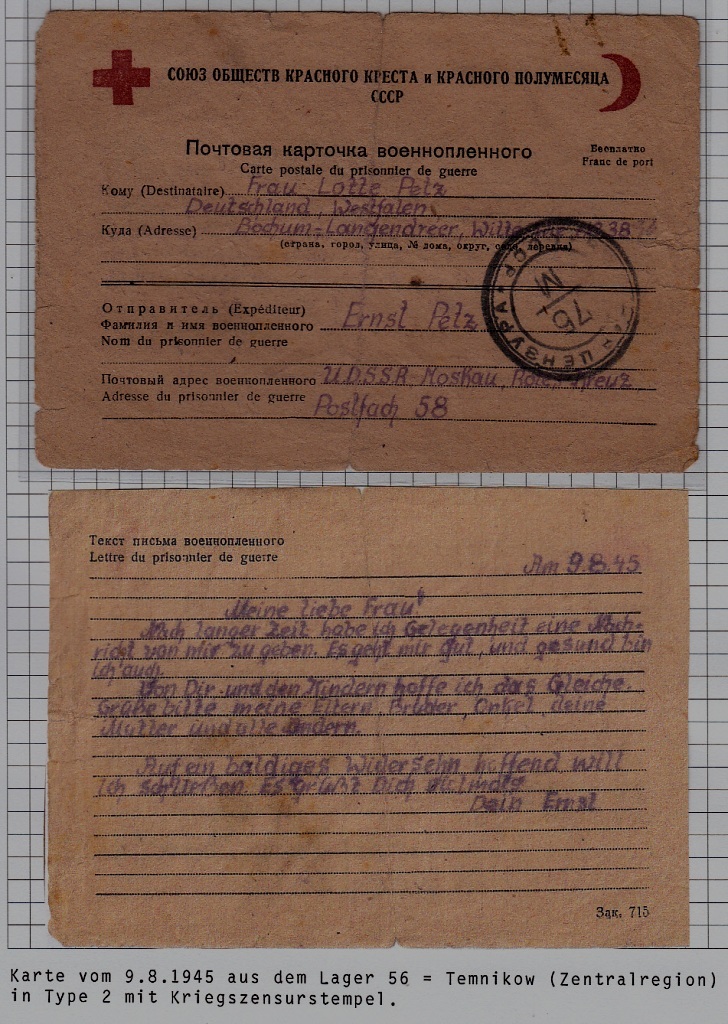 СОЮЗ ОБЩЕСТВ КРАСНОГО КРЕСТА и КРАСНОГО ПОЛУМЕСЯЦА
СССР
Почтовая карточка военнопленного
Carte postale du prisonnier de guerre
Бесплатно
Franc de port
Кому (Destinataire) Frau Lotte Pelz
Deutschland, Westfalen
Куда (Adresse) Bochum-Langendreer,
(страна, город, улица, № дома, округ, село, деревня)
ЦЕНЗУРА
Отправитель (Expéditeur)
Фамилия и имя военнопленного Ernst Pelz
Nom du prisonnier de guerre
Почтовый адрес военнопленного U.D.S.S.R. Moskau, Rotes Kreuz
Adresse du prisonnier de guerre Postfach 58
Текст письма военнопленного
Lettre du prisonnier de guerre
Am 9.8.45
Meine liebe Frau!
Nach langer Zeit habe ich Gelegenheit eine Nach-
richt von mir zu geben. Es geht mir gut, und gesund bin
ich auch.
Von Dir und den Kindern hoffe ich das Gleiche.
Grüße bitte meine Eltern, Bruder, Onkel, deine
Mutter und alle andern.
Auf ein baldiges Wiedersehn hoffend will
ich schließen. Es grüßt Dich vielmals
Dein Ernst
Зак. 715
Karte vom 9.8.1945 aus dem Lager 56 = Temnikow (Zentralregion)
in Type 2 mit Kriegszensurstempel.